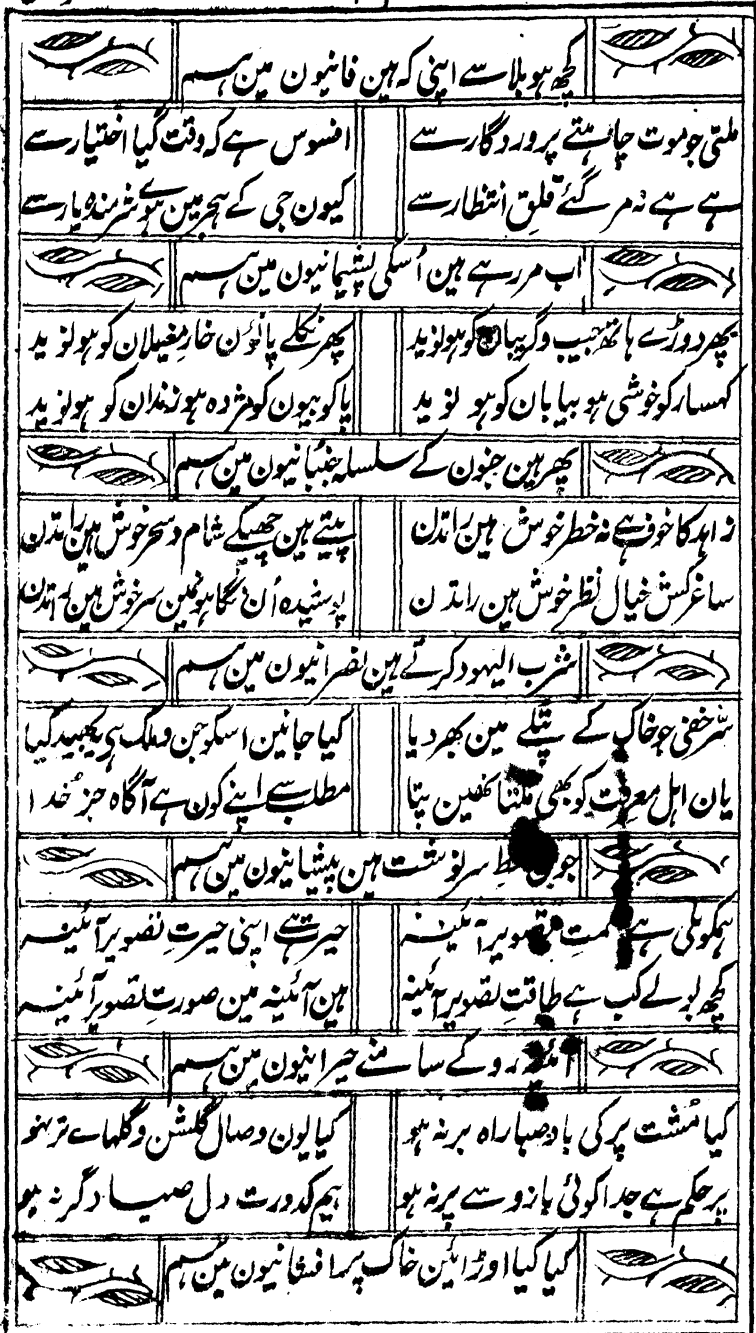 کچھ ہو بلا سے اپنی کہ ہین فانیون مین ہم
ملتی جو موت چاہتے پروردگار سے افسوس ہے کہ وقت گیا اختیار سے
ہے ہے نہ مر گئے قلقِ انتظار سے کیون جی کے ہجر مین ہوے شرمندہ یار سے
اب مر رہے ہین اُسکی پشیمانیون مین ہم
پھر دوڑے ہاتھ جیب و گریبان کو ہو نوید پھر نکلے پانوُن خارِ مغیلان کو ہو نوید
کہسار کو خوشی ہو بیابان کو ہو نوید پاکوبیون کو مژدہ ہو زندان کو ہو نوید
پھر ہین جنون کے سلسلہ جنبانیون مین ہم
زاہد کا خوف ہے نہ خطر خوش ہین راتدن پیتے ہین چھپکے شام و سحر خوش ہین راتدن
ساغر کش خیال نظر خوش ہین راتدن پوشیدہ اُن نگاہونمین سرخوش ہین راتدن
شرب الیہود کرتے ہین نصرانیون مین ہم
سّرِ خفی جو خاک کے پتلے مین بھر دیا کیا جانین اسکو جن و ملک ہی یہ بھید کیا
یان اہل معرفت کو بھی ملتا نھین پتا مطلب سے اپنے کون ہے آگاہ جز خُدا
جون خطِ سرنوشت ہین پیشانیون مین ہم
ہمکو ملی ہے قسمتِ تصویر آئینہ حیرت ہے اپنی حیرتِ تصویر آئینہ
کچھ بولے کب ہے طاقتِ تصویر آئینہ ہین آئینہ مین صورتِ تصویر آئینہ
آئینہ رو کے سامنے حیرانیون مین ہم
کیا مُشت پر کی بادِ صبا راہ بر نہ ہو کیا لون وصال گلشن و گلہاے تر نہو
پر حکم ہے جدا کوئی بازو سے پر نہ ہو ہیم کدورت دل صیاد گر نہ ہو
کیا کیا اوڑائین خاک پر افشانیون مین ہم